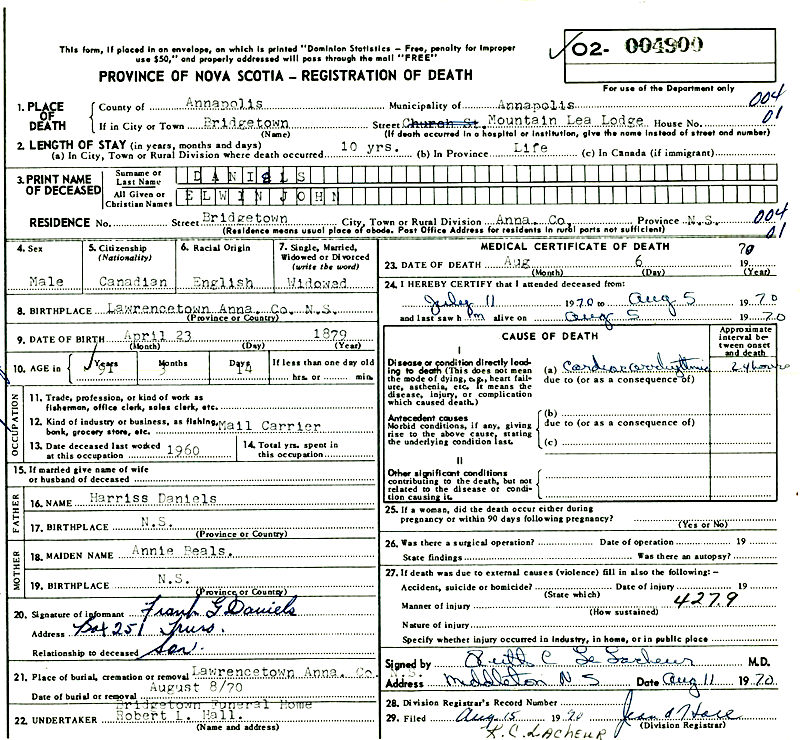 This form, if placed in an envelope, on which is printed "Dominion Statistics — Free, penalty for improper
use $50," and properly addressed will pass through the mail "FREE"
02- 004900
PROVINCE OF NOVA SCOTIA — REGISTRATION OF DEATH
For use of the Department only
1. PLACE OF DEATH County of Annapolis Municipality of Annapolis 004
If in City or Town Bridgetown Street Church St. Mountain Lea Lodge House No. 01
(Name) (If death occurred in a hospital or institution, give the name instead of street and number)
2. LENGTH OF STAY (in years, months and days)
(a) In City, Town or Rural Division where death occurred 10 yrs. (b) In Province Life (c) In Canada (if immigrant)
3. PRINT NAME OF DECEASED Surname or Last Name DANIELS
All Given or Christian Names ELWIN JOHN
RESIDENCE No. Street Bridgetown City, Town or Rural Division Anna. Co. Province N.S. 004
(Residence means usual place of abode. Post Office Address for residents in rural parts not sufficient) 01
4. Sex Male
5. Citizenship (Nationality) Canadian
6. Racial Origin English
7. Single, Married, Widowed or Divorced (write the word) Widowed
8. BIRTHPLACE Lawrencetown Anna. Co. N.S.
(Province or Country)
9. DATE OF BIRTH April 23 1879
(Month) (Day) (Year)
10. AGE in Years 91 Months 3 Days 14 If less than one day old
hrs. or min.
OCCUPATION
11. Trade, profession, or kind of work as
fisherman, office clerk, sales clerk, etc.
12. Kind of industry or business, as fishing, bank, grocery store, etc. Mail Carrier
13. Date deceased last worked at this occupation 1960
14. Total yrs. spent in this occupation
15. If married give name of wife
or husband of deceased
FATHER
16. NAME Harriss Daniels
17. BIRTHPLACE N.S.
(Province or Country)
MOTHER
18. MAIDEN NAME Annie Beals.
19. BIRTHPLACE N.S.
(Province or Country)
20. Signature of informant Frank G Daniels
Address Box 251 Truro.
Relationship to deceased Son
21. Place of burial, cremation or removal Lawrencetown Anna. Co. N.S.
Date of burial or removal August 8/70
Bridgetown Funeral Home
22. UNDERTAKER Robert L. Hall.
(Name and address)
MEDICAL CERTIFICATE OF DEATH
23. DATE OF DEATH Aug 6 19 70
(Month) (Day) (Year)
24. I HEREBY CERTIFY that I attended deceased from:
July 11 1970 to Aug 5 1970
and last saw him alive on Aug 5 1970
CAUSE OF DEATH
Approximate interval between onset and death
I
Disease or condition directly leading to death (This does not mean the mode of dying, e.g., heart failure, asthenia, etc. It means the disease, injury, or complication which caused death.)
(a) Cardiac arrhythmia 24 hours
due to (or as a consequence of)
Antecedent causes
Morbid conditions, if any, giving rise to the above cause, stating the underlying condition last.
(b)
due to (or as a consequence of)
(c)
II
Other significant conditions
contributing to the death, but not related to the disease or condition causing it.
25. If a woman, did the death occur either during
pregnancy or within 90 days following pregnancy?
(Yes or No)
26. Was there a surgical operation? Date of operation 19
State findings Was there an autopsy?
27. If death was due to external causes (violence) fill in also the following:-
Accident, suicide or homicide? Date of injury 19
(State which)
Manner of injury 427.9
(How sustained)
Nature of injury
Specify whether injury occurred in industry, in home, or in public place
Signed by Keith C Le Lacheur M.D.
Address Middleton N S Date Aug 11 1970
28. Division Registrar's Record Number
29. Filed Aug 15 1970
(Division Registrar)
K.C. LACHEUR